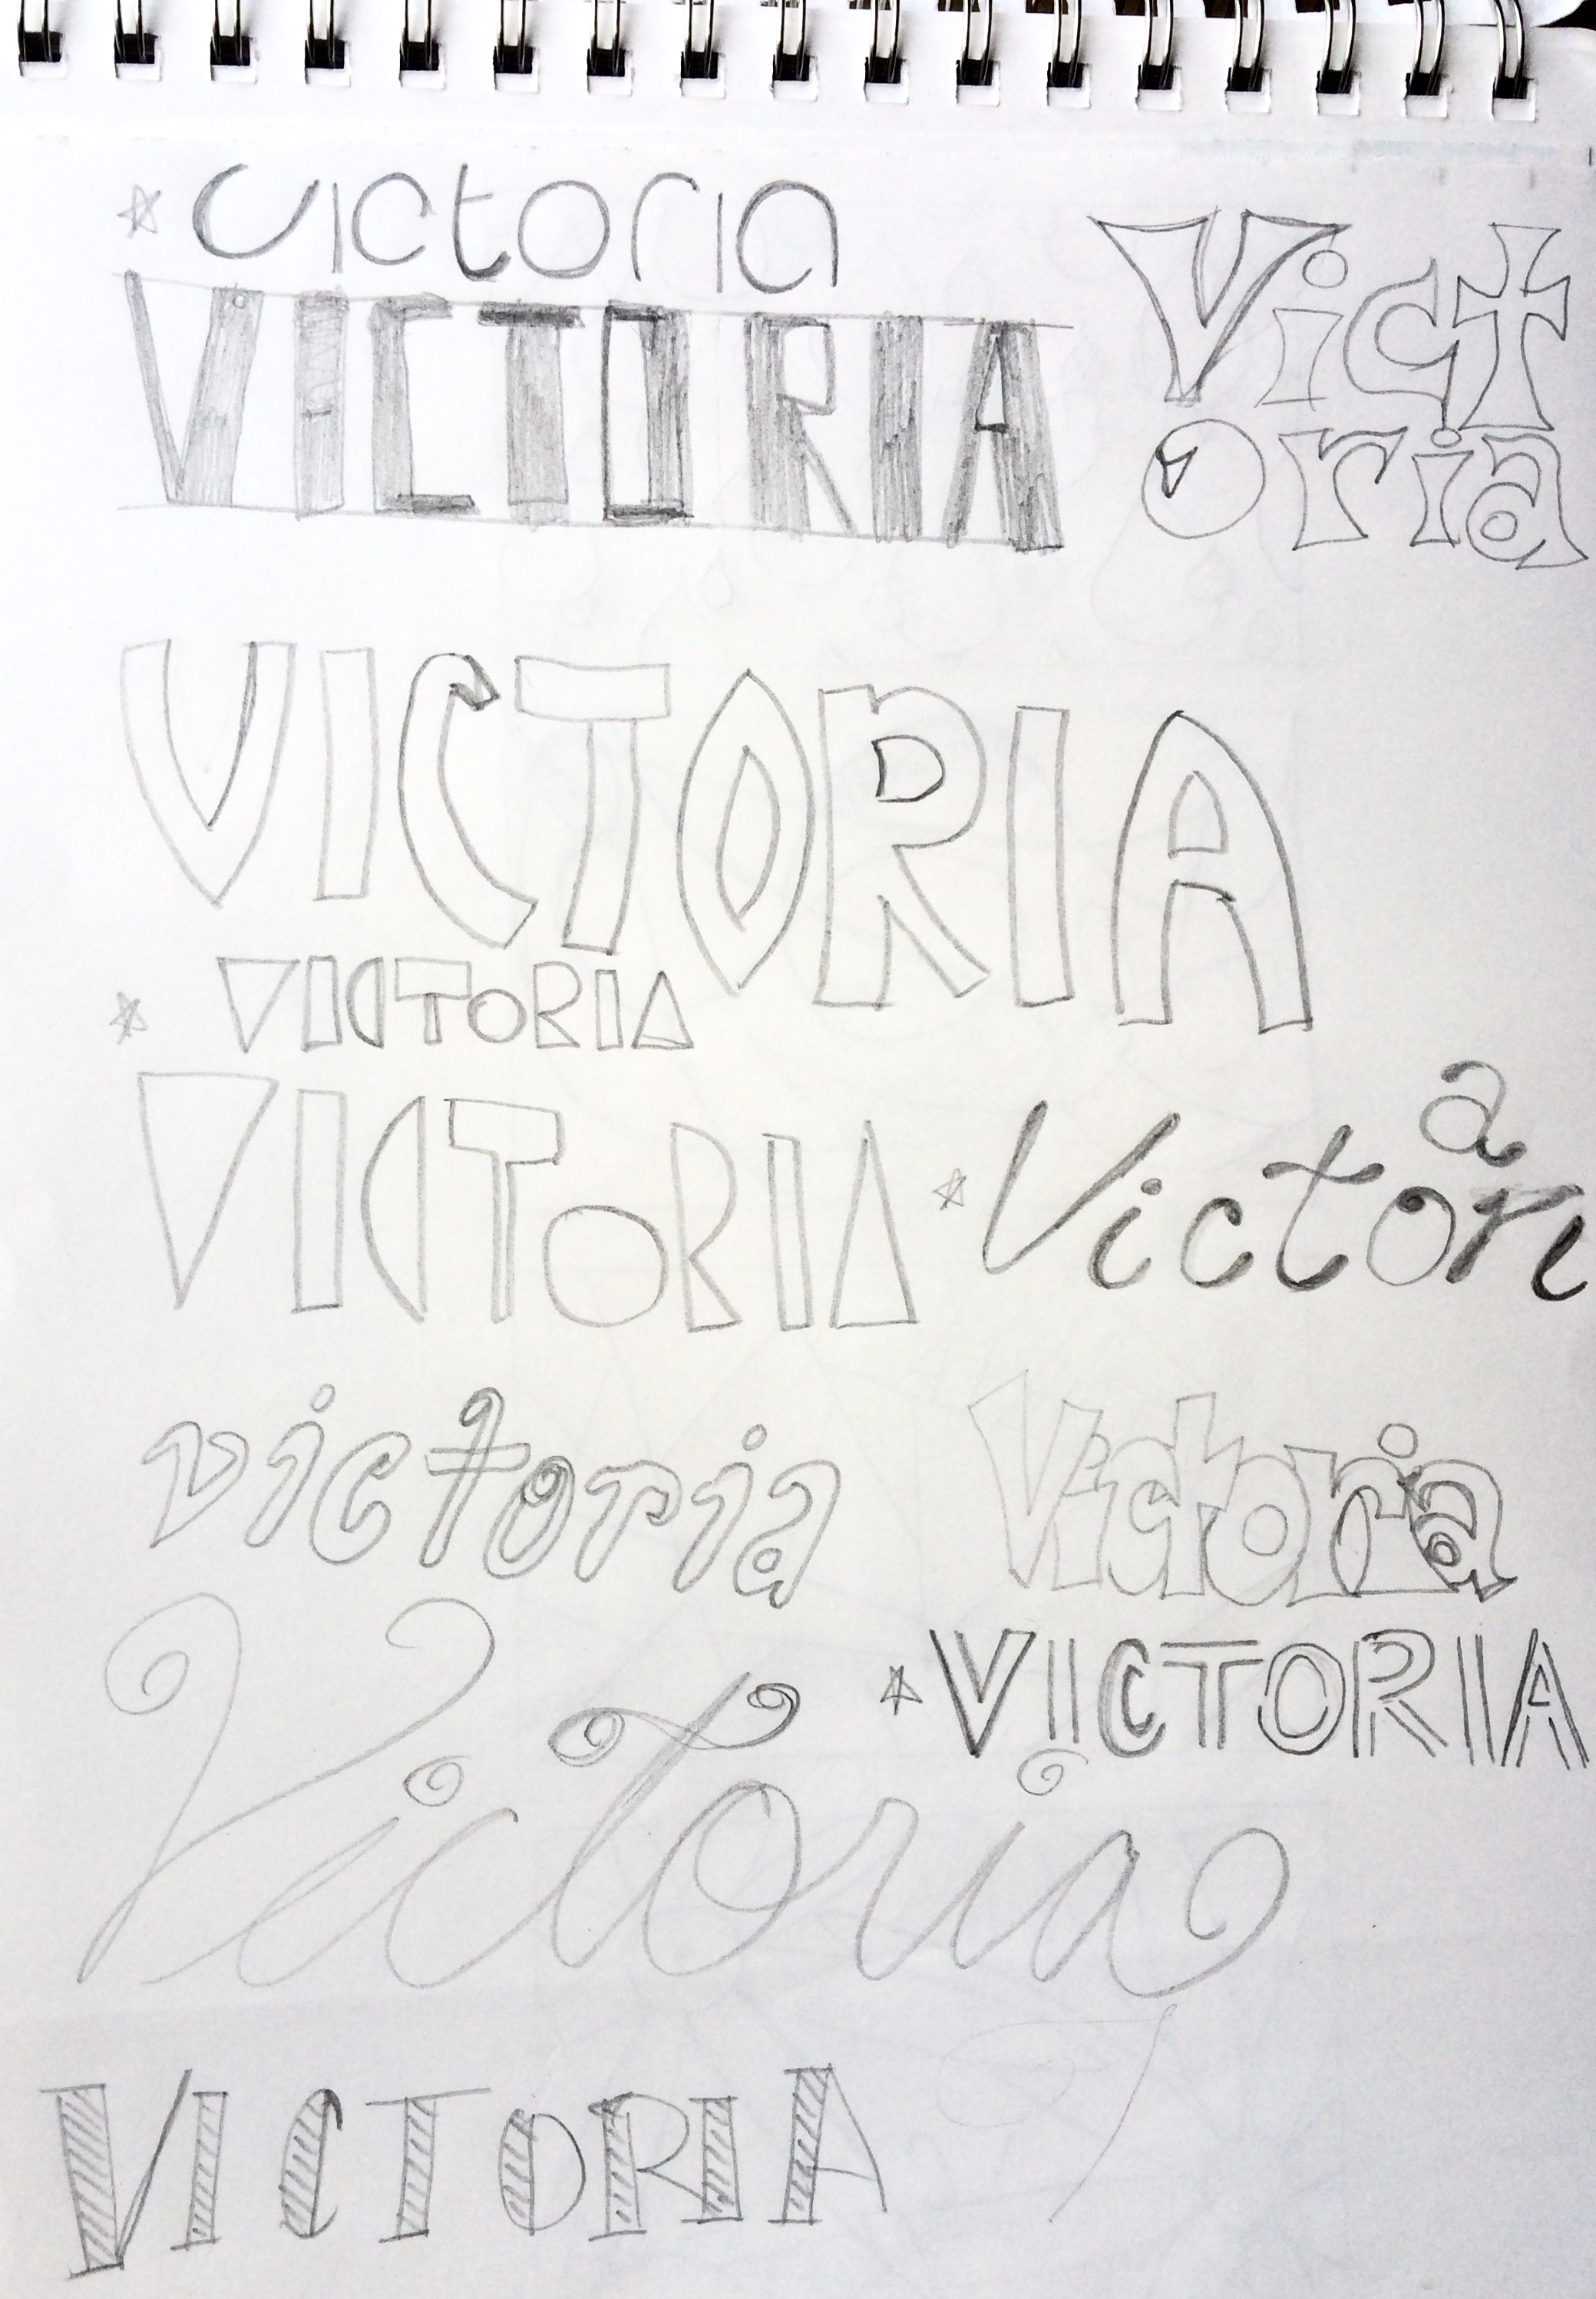 victoria
VICTORIA
Vict
oria
VICTORIA
VICTORIA
VICTORIA
a
Victori
victoria
Victoria
VICTORIA
Victoria
VICTORIA